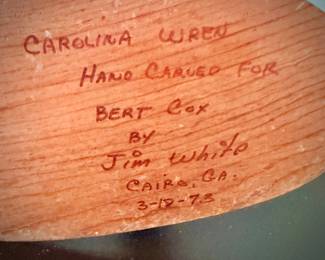 CAROLINA WREN
HAND CARVED FOR
BERT COX
BY
Jim White
CAIRO, GA.
3-12-73